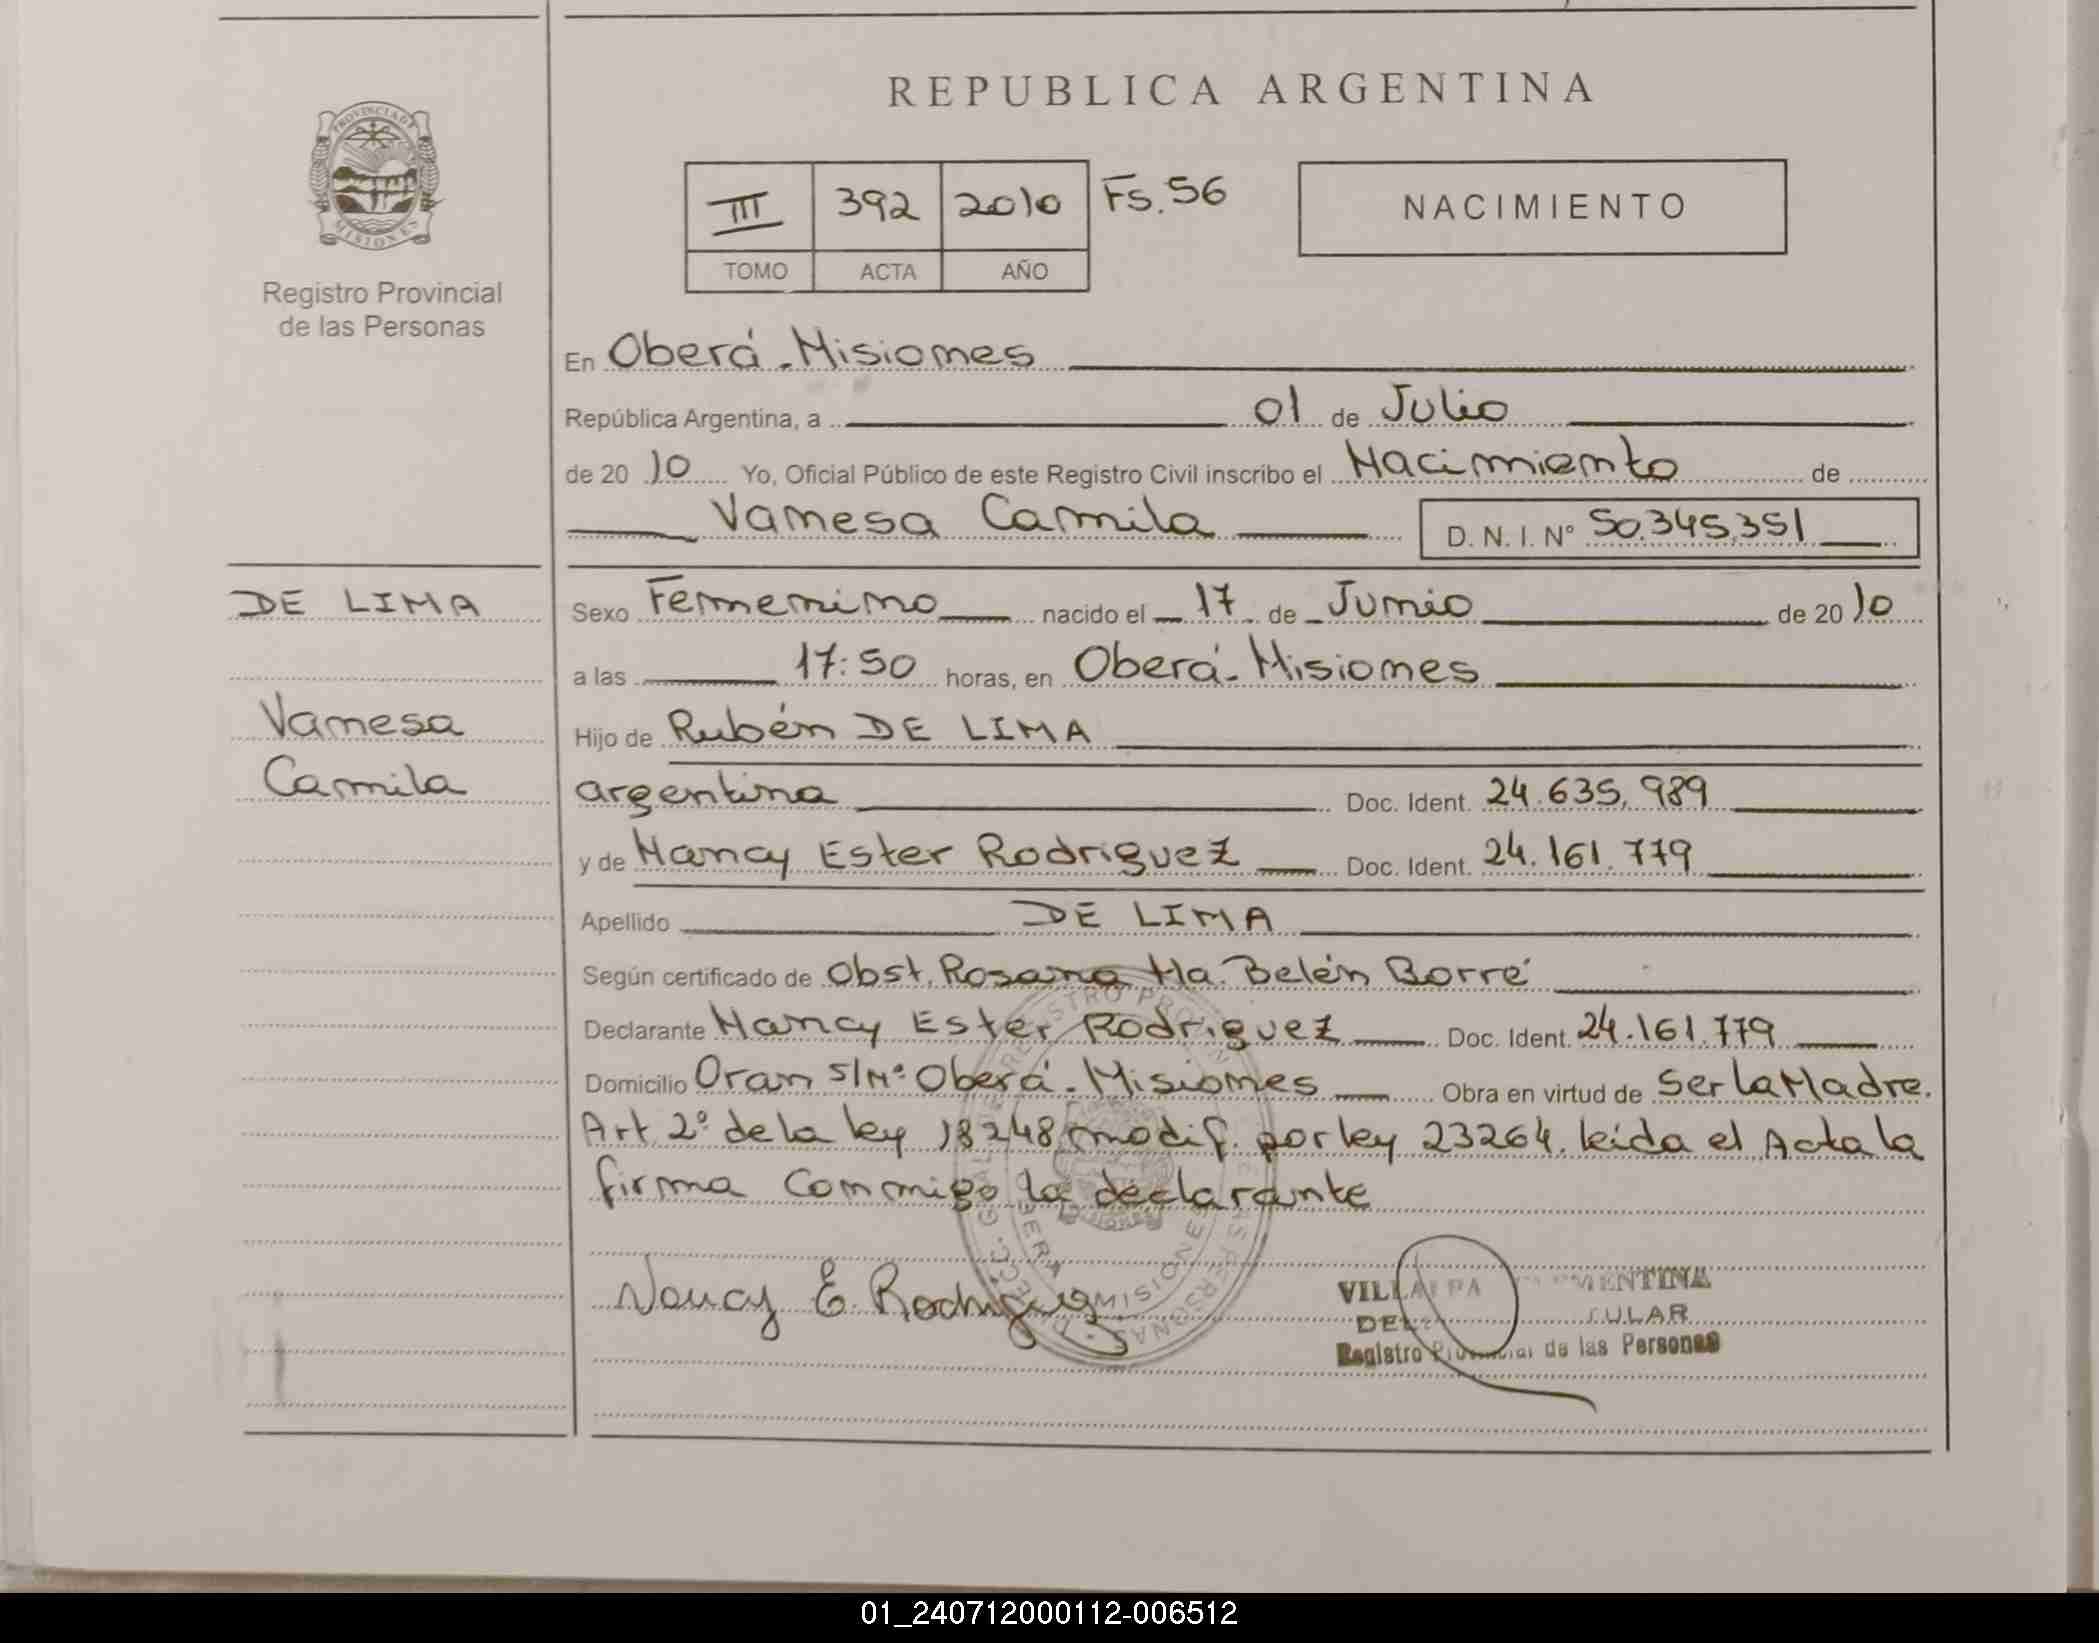 REPUBLICA ARGENTINA
PROVINCIA DE
MISIONES
Registro Provincial
de las Personas
III 392 2010 Fs. 56
TOMO ACTA AÑO
NACIMIENTO
En Oberá - Misiones
República Argentina, a 01 de Julio
de 2010 Yo, Oficial Público de este Registro Civil inscribo el Nacimiento de
Vanesa Camila D. N. I. N° 50.345.351
DE LIMA
Vanesa
Camila
Sexo Femenino nacido el 17 de Junio de 2010
a las 17:50 horas, en Oberá - Misiones
Hijo de Rubén DE LIMA
argentina Doc. Ident. 24.635.989
y de Nancy Ester Rodriguez Doc. Ident. 24.161.779
Apellido DE LIMA
Según certificado de Obst. Rosana Ma. Belén Borré
Declarante Nancy Ester Rodriguez Doc. Ident. 24.161.779
Domicilio Oran S/Nº Oberá - Misiones Obra en virtud de Ser la Madre.
Art 2º de la ley 18248 modif. por ley 23264. leida el Acta la
firma conmigo la declarante
Nancy E. Rodriguez
Registro Provincial de las Personas
01_240712000112-006512